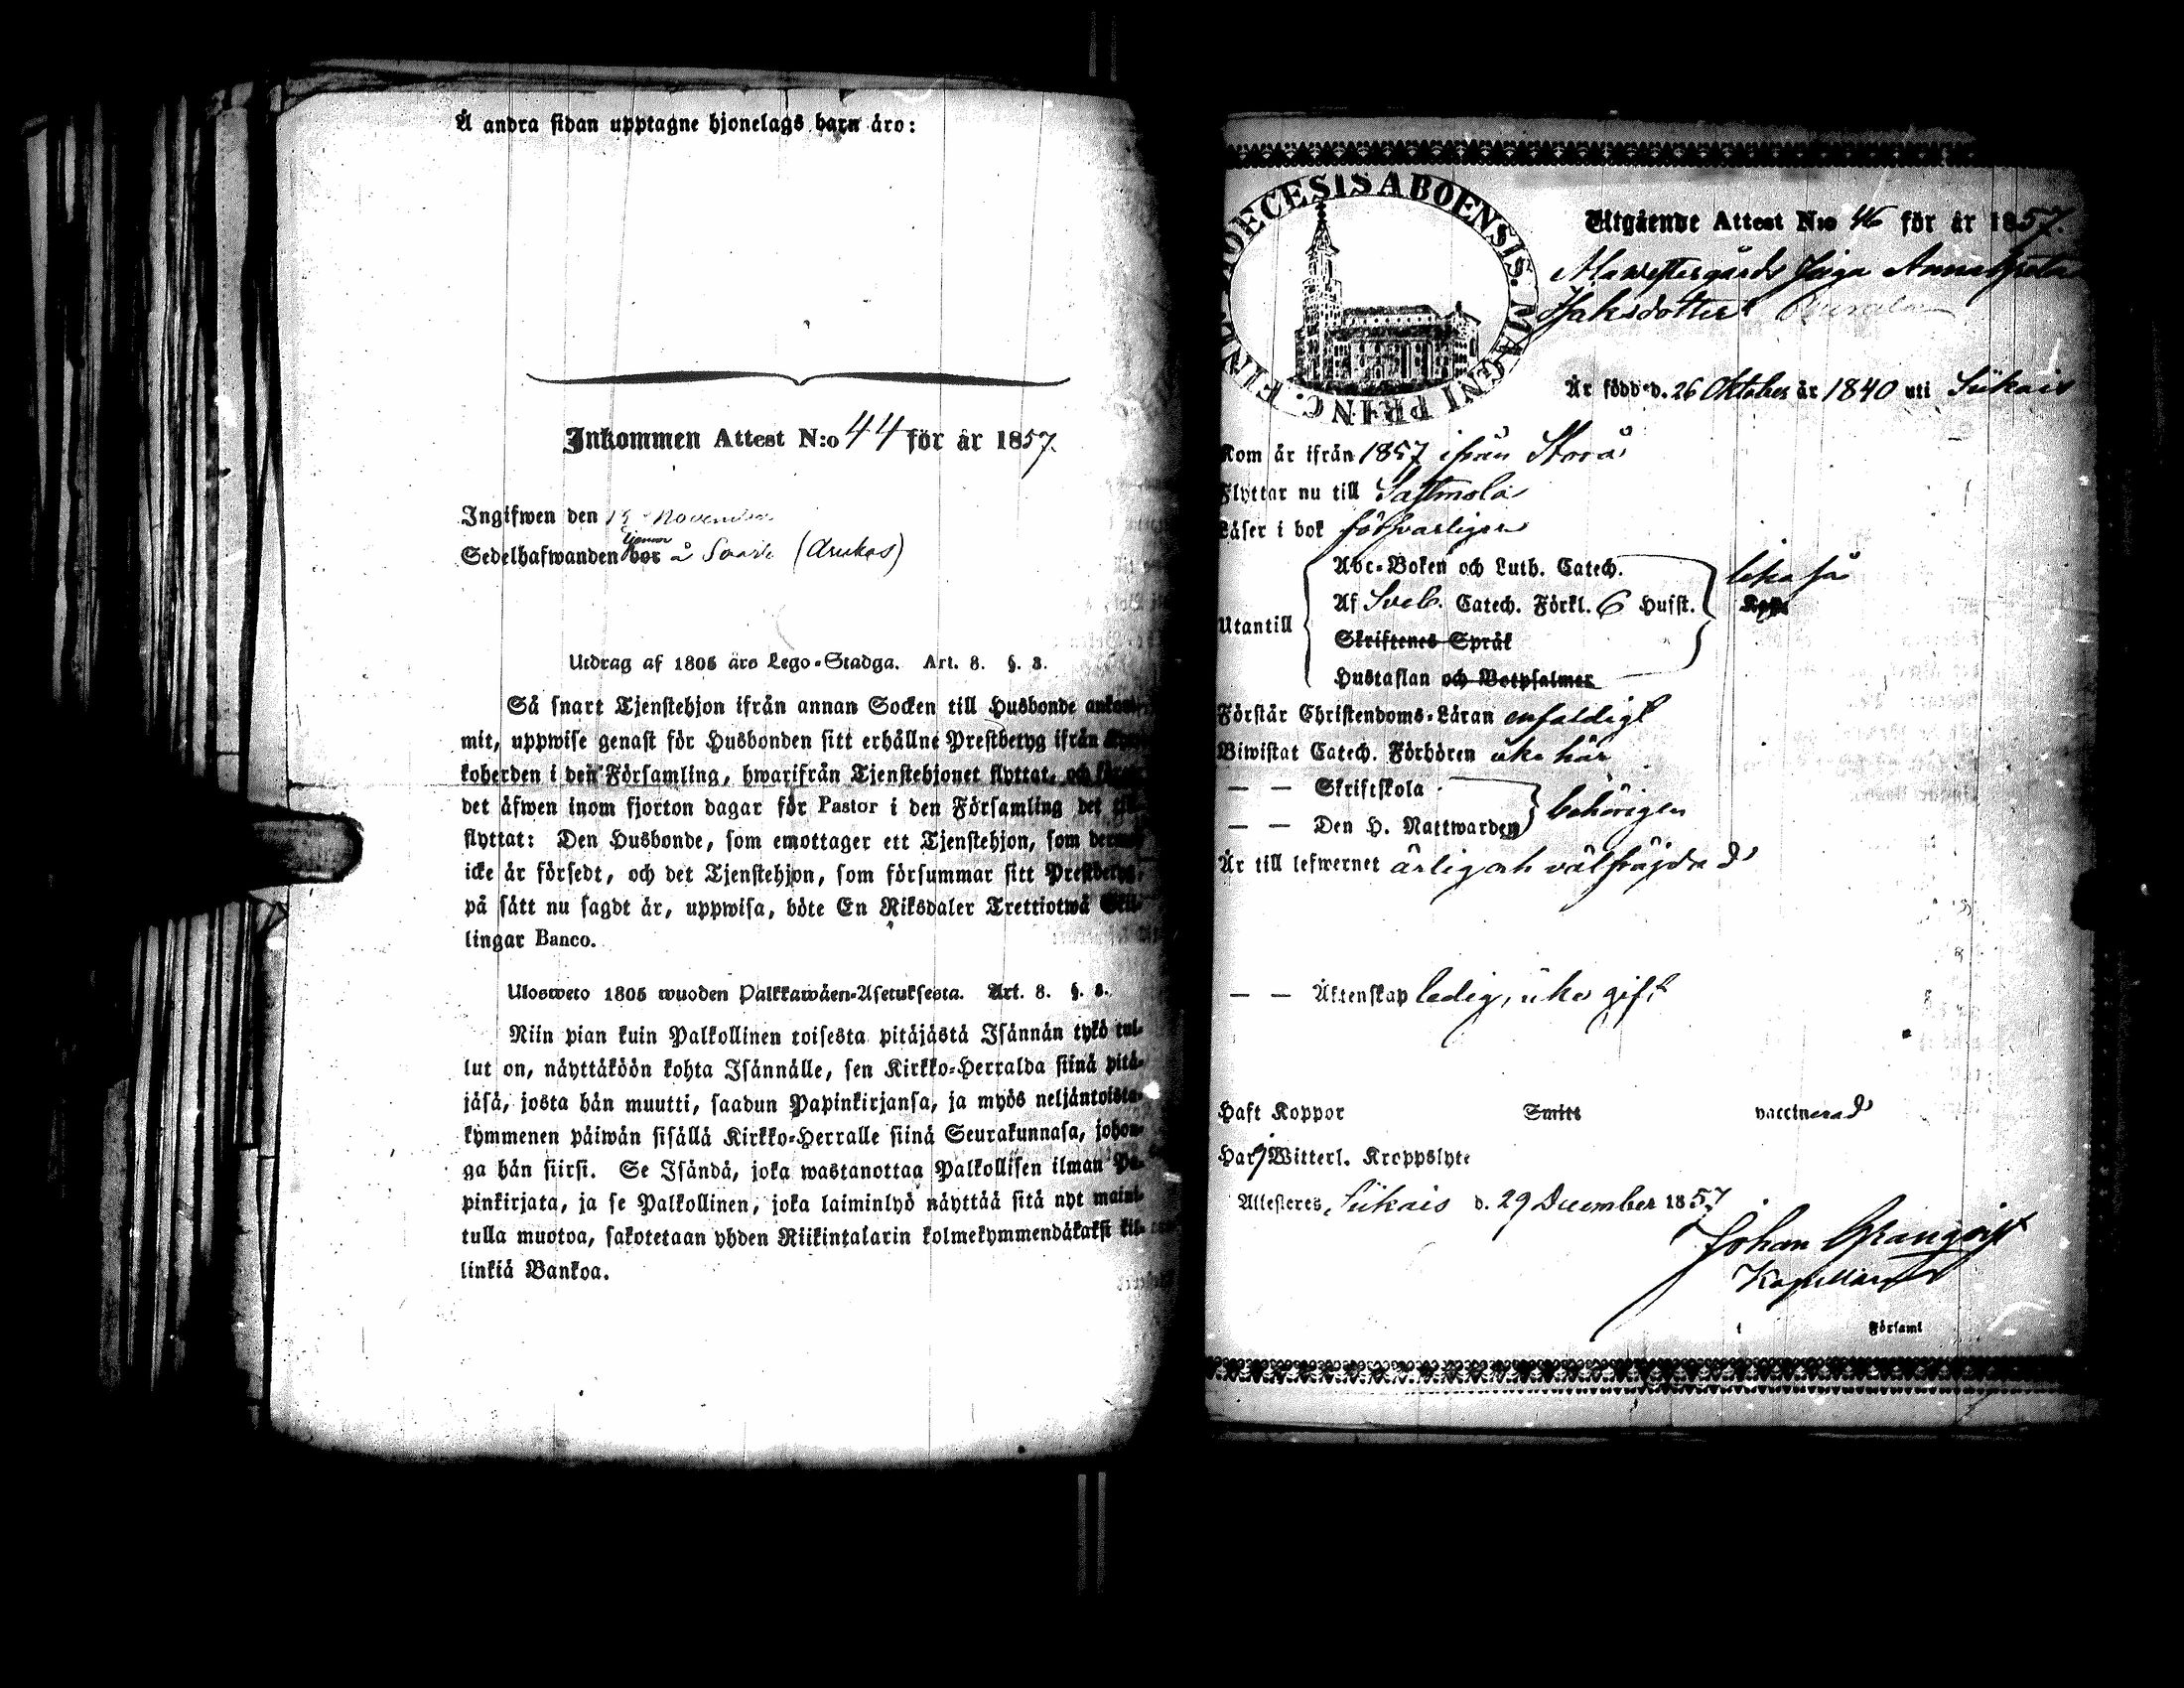 Å andra sidan upptagne hjonelags barn äro:
Inkommen Attest N:o 44 för år 1857.
Ingifwen den 19 November
tjenar
Sedelhafwanden bor å Saari
Utdrag af 1805 års Lego-Stadga. Art. 8. §. 3.
Så snart Tjenstehjon ifrån annan Socken till Husbonde ankom-
mit, uppwise genast för Husbonden sitt erhållne Prestbetyg ifrån
koherden i den Församling, hwarifrån Tjenstehjonet flyttat, och
det äfwen inom fjorton dagar för Pastor i den Församling det
flyttat: Den Husbonde, som emottager ett Tjenstehjon, som
icke är försedt, och det Tjenstehjon, som försummar sitt Prestbetyg,
på sätt nu sagdt är, uppwisa, böte En Riksdaler Trettiotwå Skil-
lingar Banco.
Ulosweto 1805 wuoden Palkkawäen-Asetuksesta. Art. 8. §. 3.
Niin pian kuin Palkollinen toisesta pitäjästä Isännän tykö tul-
lut on, näyttäköön kohta Isännälle, sen Kirkko-Herralda siinä pitä-
jäsä, josta hän muutti, saadun Papinkirjansa, ja myös neljäntoista-
kymmenen päiwän sisällä Kirkko-Herralle siinä Seurakunnasa, johon-
ga hän siirsi. Se Isändä, joka wastanottaa Palkollisen ilman Pa-
pinkirjata, ja se Palkollinen, joka laiminlyö näyttää sitä nyt maini-
tulla muotoa, sakotetaan yhden Riikintalarin kolmekymmendäkaksi kil-
linkiä Bankoa.
DIOECESIS ABOENSIS. MAGNI PRINC. FINL.
Utgående Attest N:o 46 för år 1857.
Alawestergårds Piga Anna Greta
Isaksdotter
Är född d. 26 Oktober år 1840 uti Siikais
Kom år ifrån 1857 ifrån Storå
Flyttar nu till Sastmola
Läser i bok försvarligen
Utantill
Abc-Boken och Luth. Catech.
Af Sveb. Catech. Förkl. 6 Hufst.
Skriftenes Språk
Hustaflan och Botpsalmer
lika så
Förstår Christendoms-Läran enfaldigt
Biwistat Catech. Förhören icke här
— — Skriftskola
— — Den H. Nattwarden
behörigen
Är till lefwernet ärlig och välfräjdad
— — Äktenskap ledig, icke gift
Haft Koppor Smitt vaccinerad
Har ej Witterl. Kroppslyte
Attesteres, Siikais d. 29 December 1857
Johan Granqvist
Kapellan
i Församl